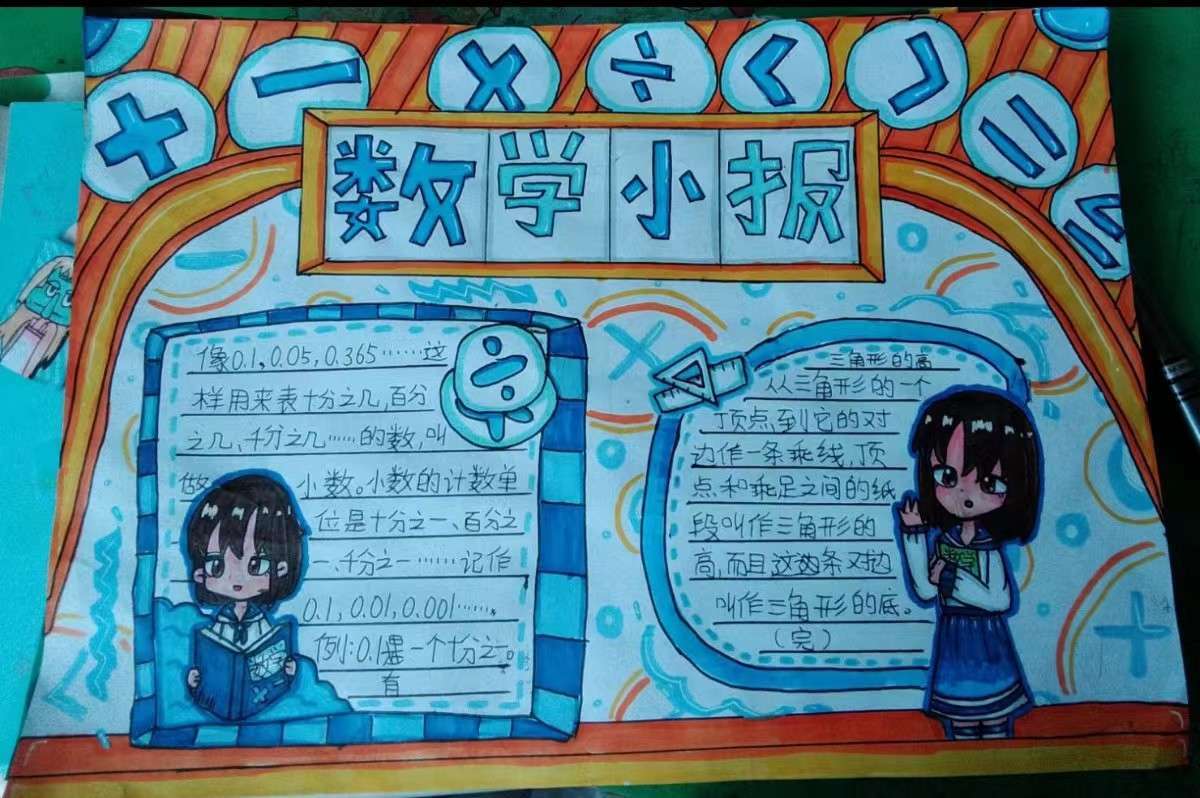 + − × ÷ < > = ≤
数学小报
像0.1,0.05,0.365……这
样用来表十分之几,百分
之几,千分之几……的数,叫
做小数。小数的计数单
位是十分之一、百分之
一、千分之一……记作
0.1,0.01,0.001……。
例:0.1是一个十分之一。
有
÷
数学
×
三角形的高
从三角形的一个
顶点到它的对
边作一条乘线,顶
点和乘足之间的纸
段叫作三角形的
高,而且这边条对边
叫作三角形的底。
(完)
数学